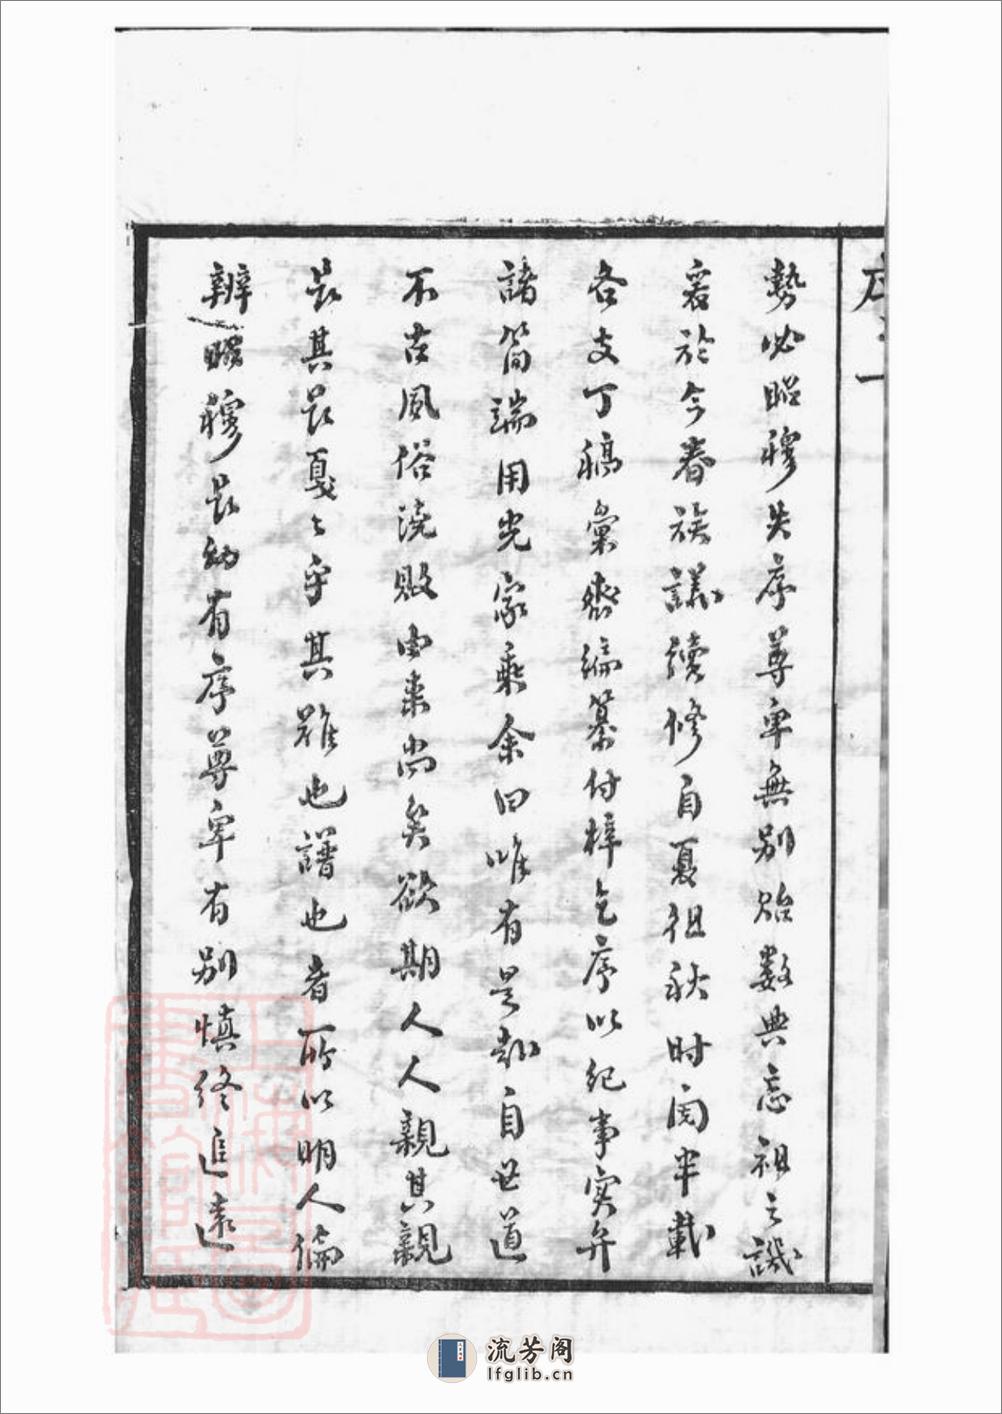 序 一
勢必昭穆失序尊卑無別貽數典忘祖之譏
爰於今春族議續修自夏徂秋时閱半載
各支丁稿彙齊編纂付梓乞序以紀事实弁
諸简端用光家乘余曰唯有是哉自世道
不古風俗澆敗由来尚矣欲期人人親其親
長其長戛戛乎其難也譜也者所以明人倫
辨昭穆長幼有序尊卑有别慎终追遠
流芳阁
lfglib.cn